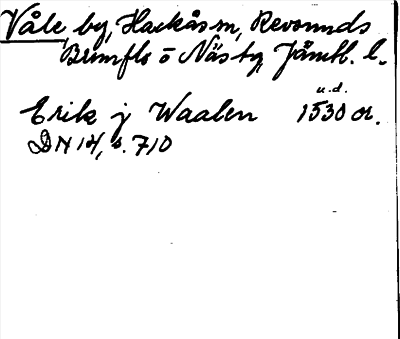 Våle by, Hackås sn, Revsunds
Brunflo o Näs tg, Jämtl. l.
u.d.
Erik j Waalen 1530 ca.
DN 14, s. 710